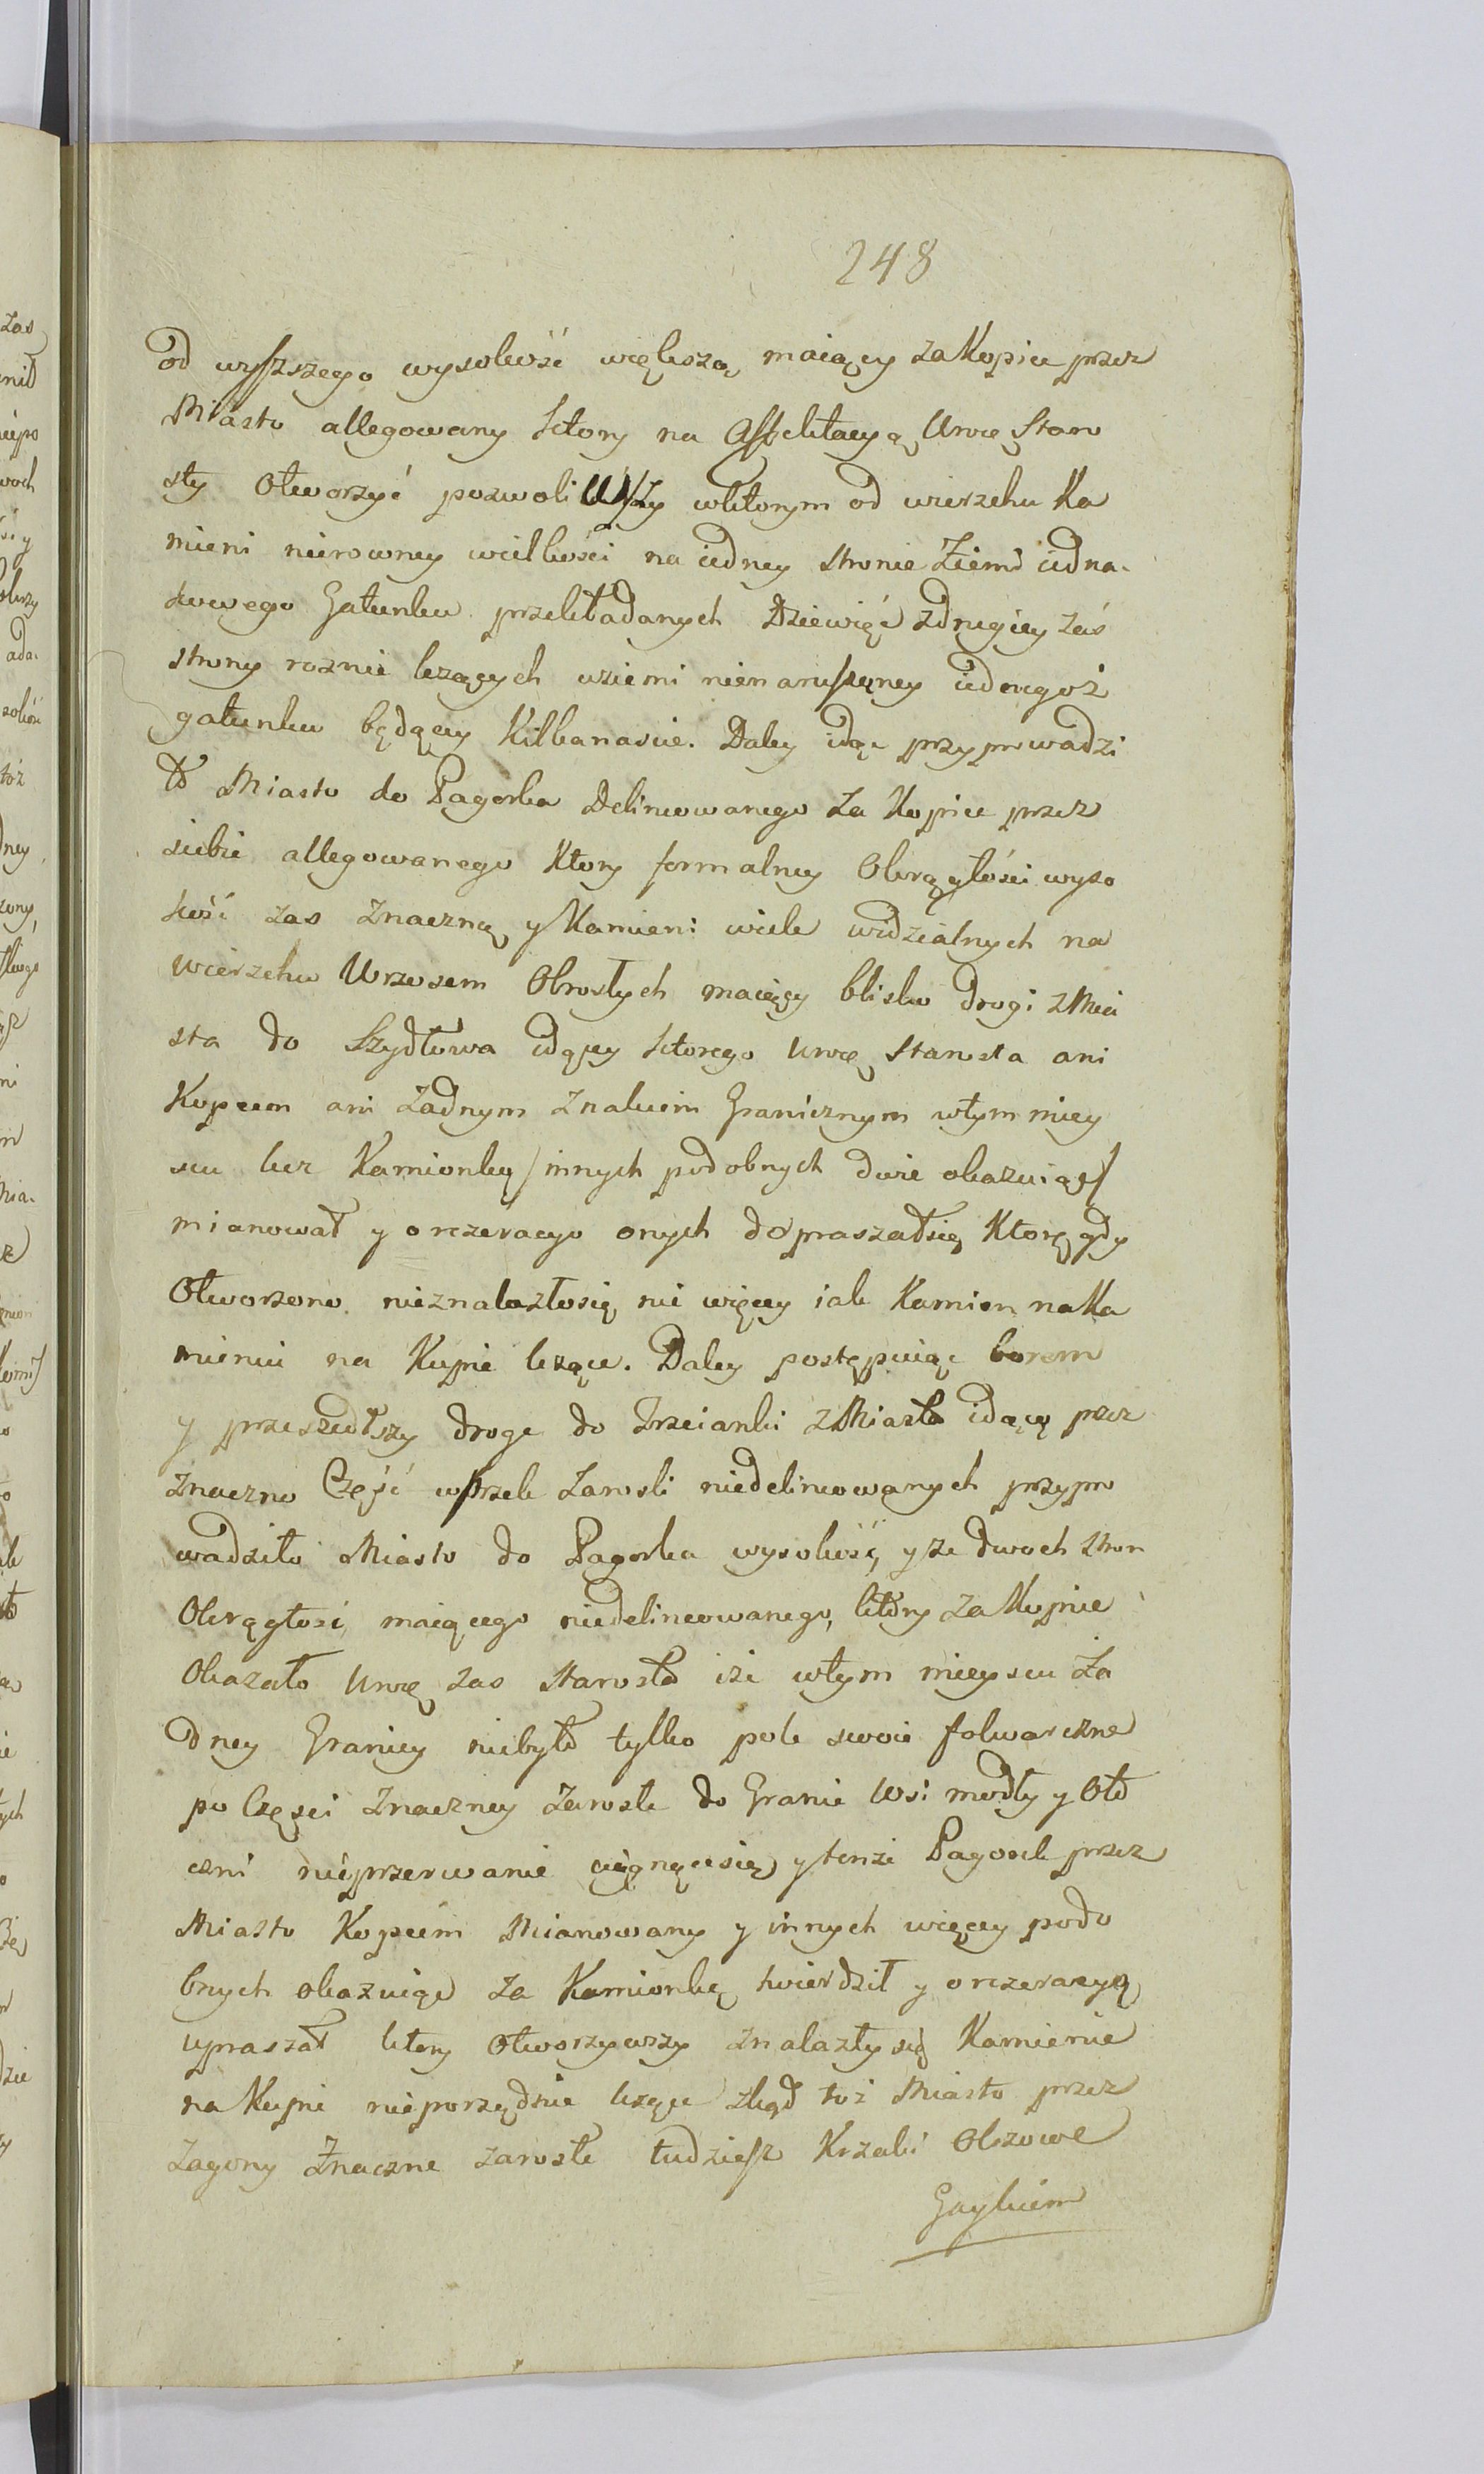 248
od wyszszego wysokość większą maiący za Kopiec przez
Miasto allegowany ktory na affektacyą Urze Staro
sty otworzyć pozwoliwszy wktorym od wierzchu Ka
mieni nierowney wielkości na iedney stronie Ziemi iedna-
kowego Gatunku przekładanych Dziewięć zdrugiey zaś
strony roznie leżących wziemi nienaruszoney iednegoż
gatunku będący Kilkanascie. Daley idąc przyprowadzi
ło Miasto do Pagorka Delineowanego za Kopiec przez
siebie allegowanego Ktory formalney Okrągłości wyso
kość zas znaczną y Kamieni wiele widzialnych na
wierzchu Wrzosem Obrosłych maiący blisko drogi z Mia
sta do Szydłowa idącey ktorego Urze Starosta ani
Kopcem ani żadnym znakiem Granicznym wtym miey
scu lecz Kamionką / innych podobnych dwie okazuiąc /
mianował y o rezeracyo onych dopraszałsię Ktorą gdy
Otworzono nieznalazłosię nic więcey iak Kamien na Ka
mieniu na Kupie leżące. Daley postępuiąc borem
y przeszedłszy droge do Trzcianki z Miasta idącą przez
znaczno Część wprzek Zarosli niedelineowanych przypro
wadziło Miasto do Pagorka wysokość y ze dwoch stron
Okrągłość maiącego niedelineowanego, ktory za Kopiec
Okazało Urze zas Starosta iże wtym mieyscu Ża
dney Granicy niebyło tylko pole swoie folwarczne
po Części znaczney zarosłe do Granic Wsi modły y Otd
czni nieprzerwanie ciągnącesię y tenże Pagorek przez
Miasto Kopcem Mianowany y innych więcey podo
bnych okazuiąc za Kamionkę twierdził y o rezeracyą
upraszał ktory otworzywszy znalazły się Kamienie
na Kupie nieporządnie leżące zkąd toż Miasto przez
Zagony Znaczne zarosłe tudziesz Krzaki Olszowe
Gaykiem